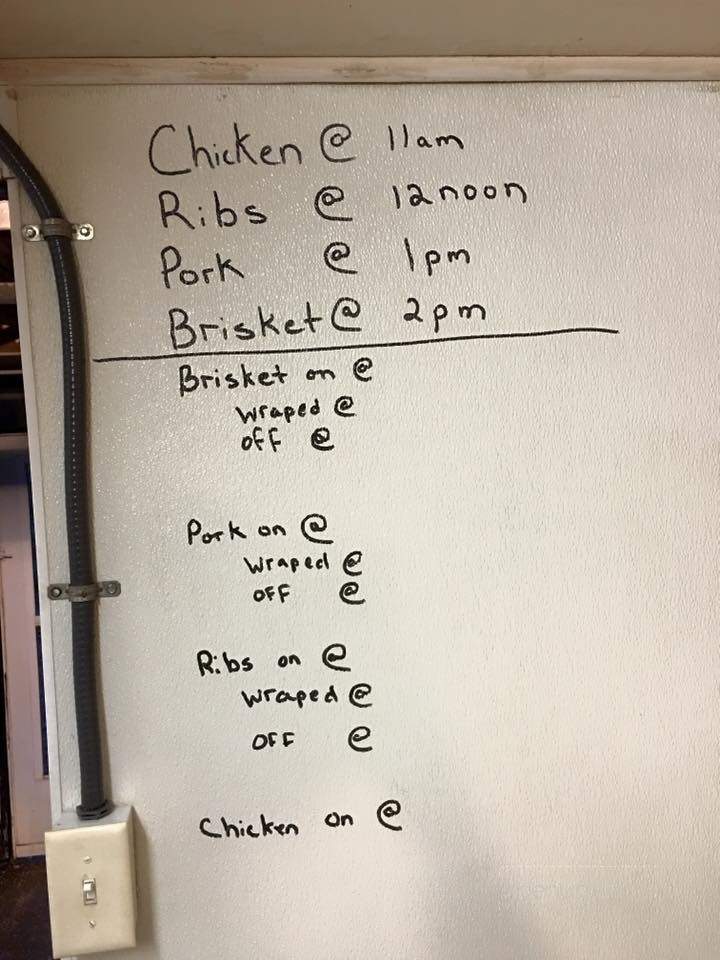 Chicken @ 11am
Ribs @ 12noon
Pork @ 1pm
Brisket @ 2pm
Brisket on @
wraped @
off @
Pork on @
wraped @
OFF @
Ribs on @
wraped @
OFF @
Chicken on @